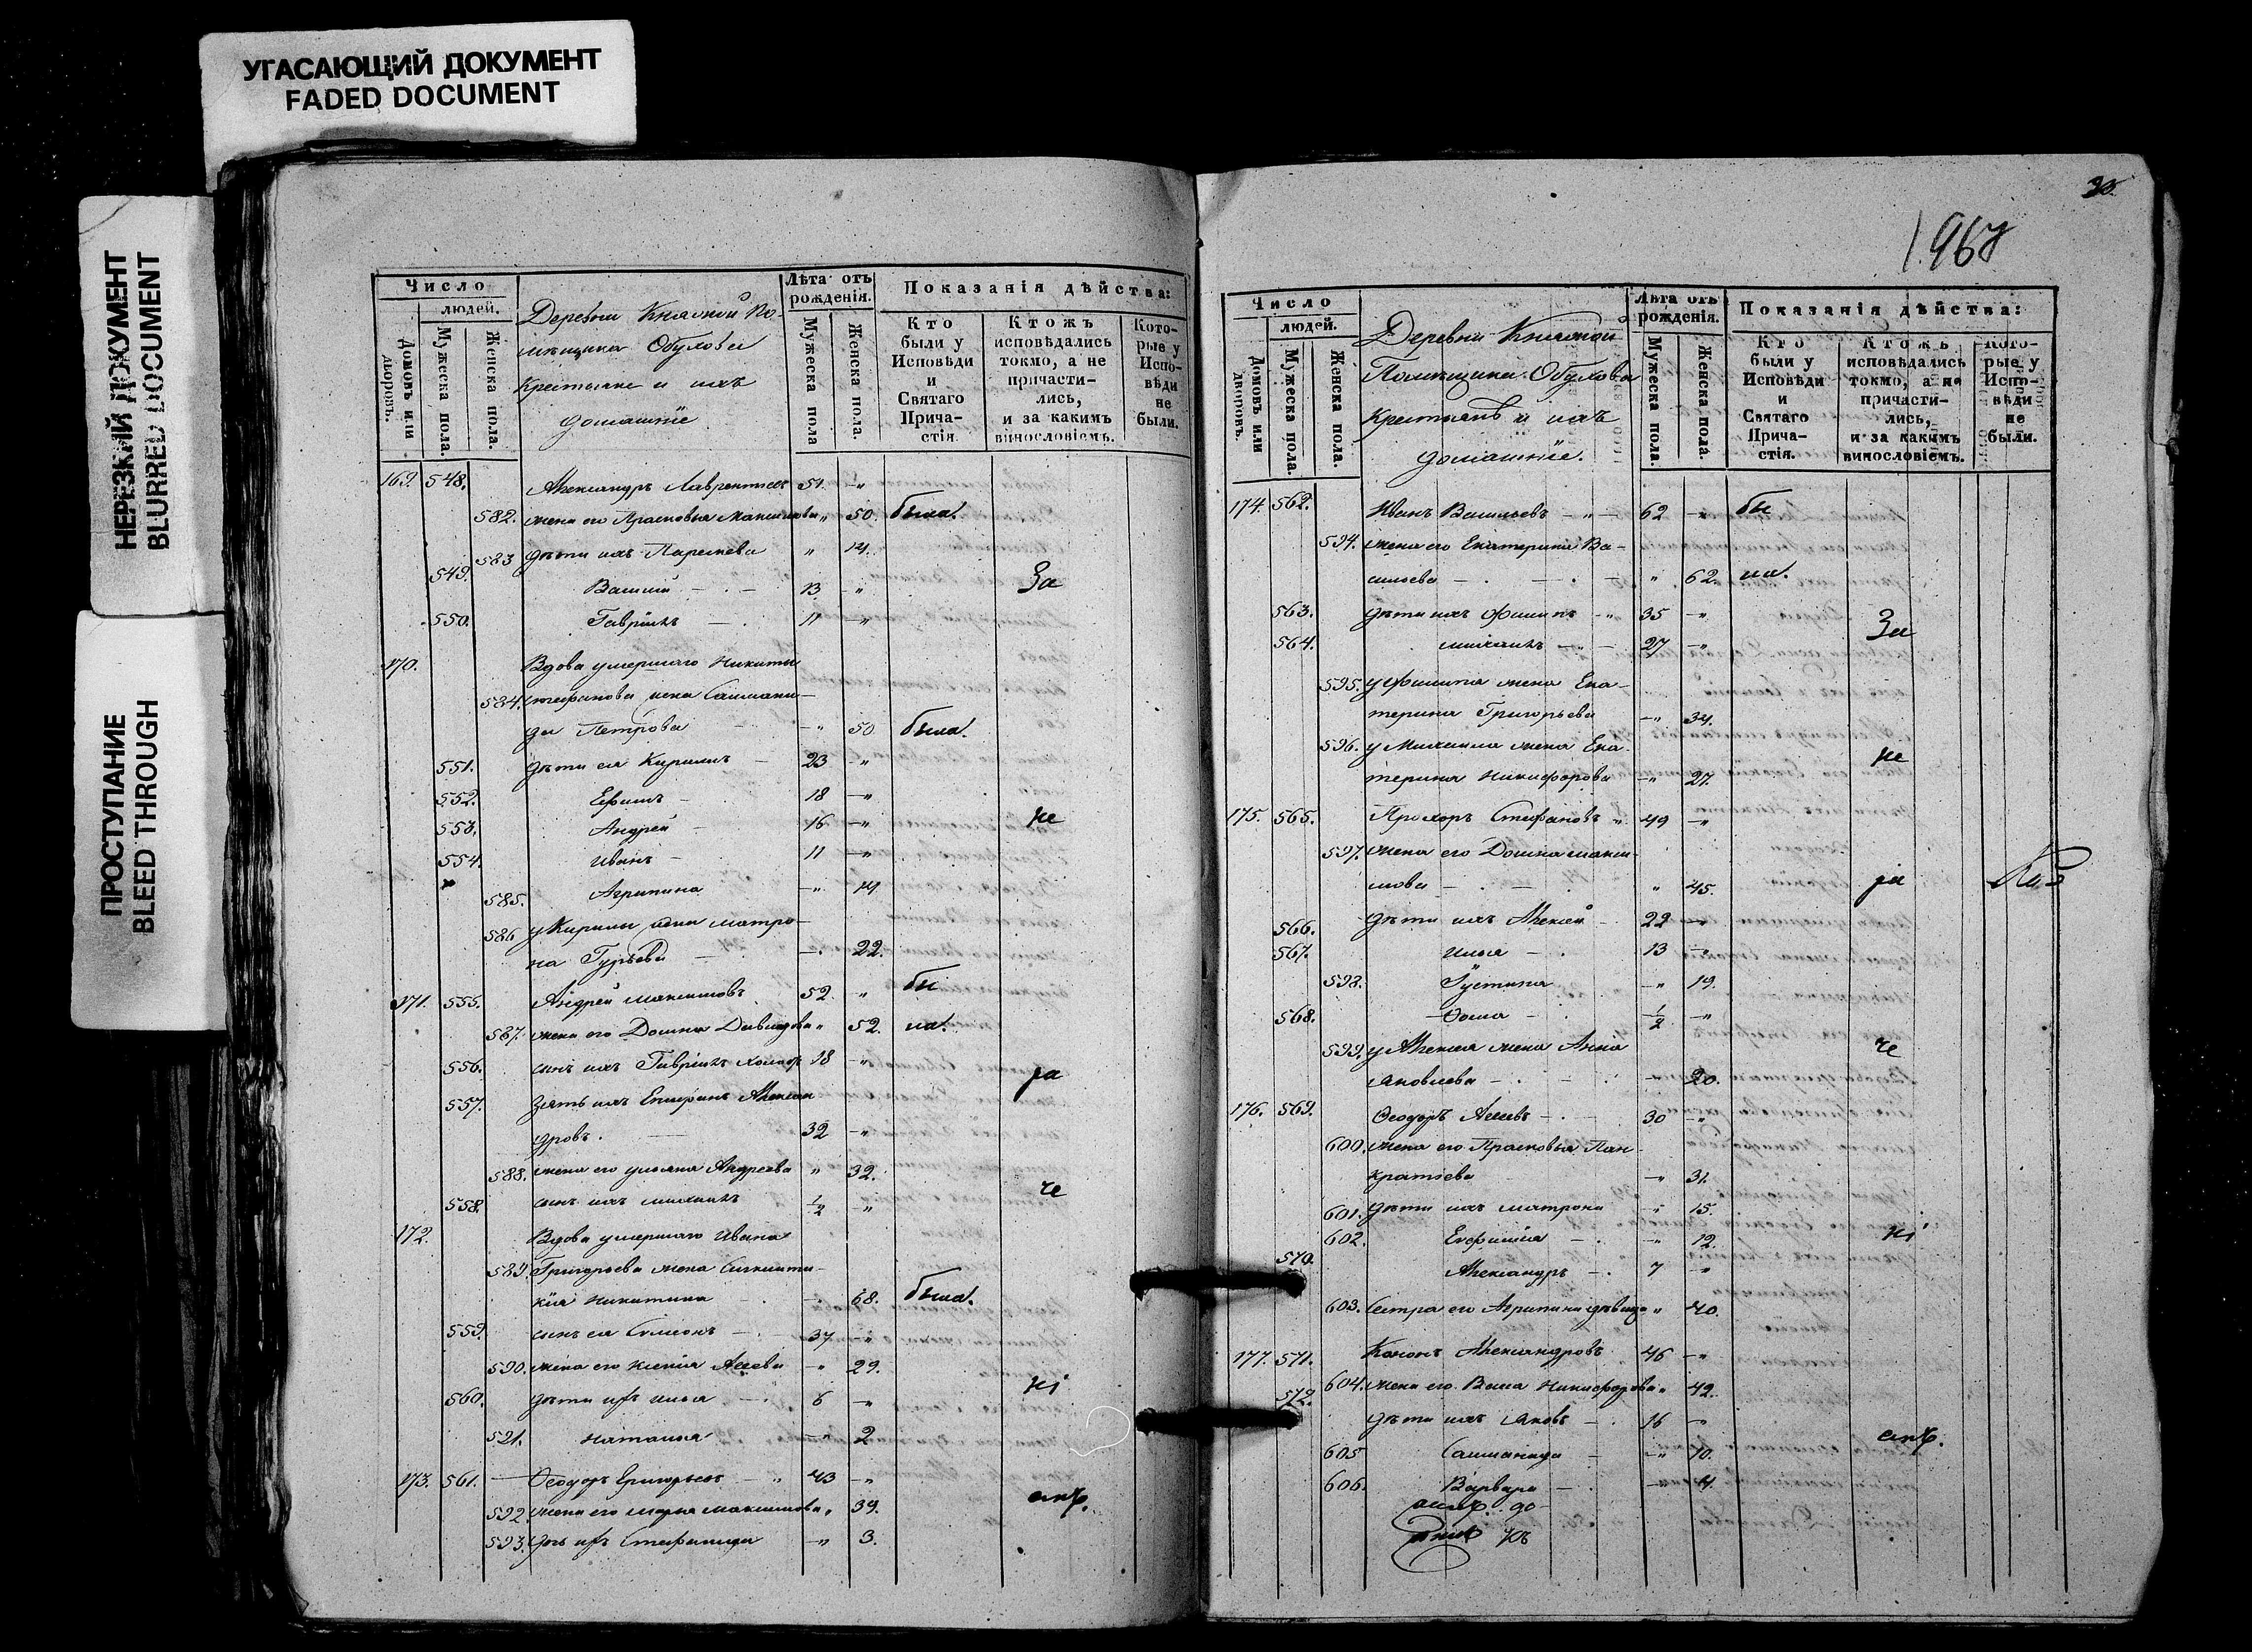 УГАСАЮЩИЙ ДОКУМЕНТ
FADED DOCUMENT
НЕРЕЗКИЙ ДОКУМЕНТ
BLURRED DOCUMENT
ПРОСТУПАНИЕ
BLEED THROUGH
Число
людей.
Домовъ или дворовъ.
Мужеска пола.
Женска пола.
Деревни Княжой По-
мѣщика Обухова
Крестьяне и ихъ
домашнїе
Лѣта отъ рожденія.
Мужеска пола
Женска пола.
Показанія дѣйства:
Кто были у Исповѣди и Святаго Прича-стія
Ктожъ исповѣдались токмо, а не причасти-лись, и за какимъ винословіемъ.
Кото-рые у Испо-вѣди не были.
169. 548. Александръ Лаврентьевъ 51. -"
582. жена его Прасковья Максимова " 50. была.
583 дѣти ихъ Параскева " 14.
549. Василий 13 -" За
550. Гаврїилъ 11 -"
170. Вдова умершаго Никиты
584. Стефанова жена Саломани-
да Петрова -" 50 была.
551. дѣти ея Кирилъ 23 -"
552. Ефимъ 18 -"
553. Андрей 16 -" не
554. Иванъ 11 -"
585. Агрипина -" 14
586 у Кирилы жена Матро-
на Гурьева 22.
171. 555. Андрей Максимовъ 52. " бы
587. жена его Домна Давидова " 52. ла.
556. сынъ ихъ Гаврїилъ 18 -"
557. Зять ихъ Александ ра
дровъ. 32 -"
588. жена его Ульяна Андреева " 32.
558. сынъ ихъ Михаилъ 1/2 -" че
172. Вдова умершаго Ивана
589. Григорьева жена
кїя Никитина 68. была.
559. сынъ ея Симеонъ 37 -"
590. жена его Ксенїя Агеева -" 29.
560. дѣти ихъ Илья 6 -" нї
591. Наталья -" 2
173. 561. Феодоръ Григорьевъ 43 -"
592. жена его Марья Максимова " 39. емъ.
593. дочь ихъ Стефанида -" 3.
1968
Число
людей.
Домовъ или дворовъ.
Мужеска пола.
Женска пола.
Деревни Княжой
Помѣщика Обухова
Крестьянѣ и ихъ
домашнїе.
Лѣта отъ рожденія.
Мужеска пола.
Женска пола.
Показанія дѣйства:
Кто были у Исповѣди и Святаго Прича-стія.
Ктожъ исповѣдались токмо, а не причасти-лись, и за какимъ винословіемъ.
Кото-рые у Испо-вѣди не были.
174 562. Иванъ Васильевъ 62 -" бы
594. жена его Екатерина Ва-
сильева " 62. ла.
563. дѣти ихъ Филипъ 35 -" За
564. Михаилъ 27 -"
595. у Филипа жена Ека-
терина Григорьева -" 34.
596. у Михаила жена Ека- не
терина Никифорова -" 27.
175. 565. Прохоръ Стефановъ " 49 -"
597. жена его Домна Макси-
мова " 45. ра
566. дѣти ихъ Алексей 22 -"
567. Илья 13 -"
598. Густина -" 19.
568. Фома 1/2 -"
599. у Алексея жена Анна че
Яковлева 20.
176. 569. Феодоръ Агеевъ 30 -"
600. жена его Прасковья Пан-
кратьева -" 31.
601. дѣти ихъ Матрона -" 15.
602. Евфимїя -" 12. нї
570. Александръ 7 -"
603. Сестра его Агрипина дѣвица " 40.
177. 571. Кононъ Александровъ 46 -"
604. жена его Васса Никифорова " 42.
572. дѣти ихъ Яковъ 16 -" емъ.
605 Саломанида -" 10.
606. Варвара -" 4.